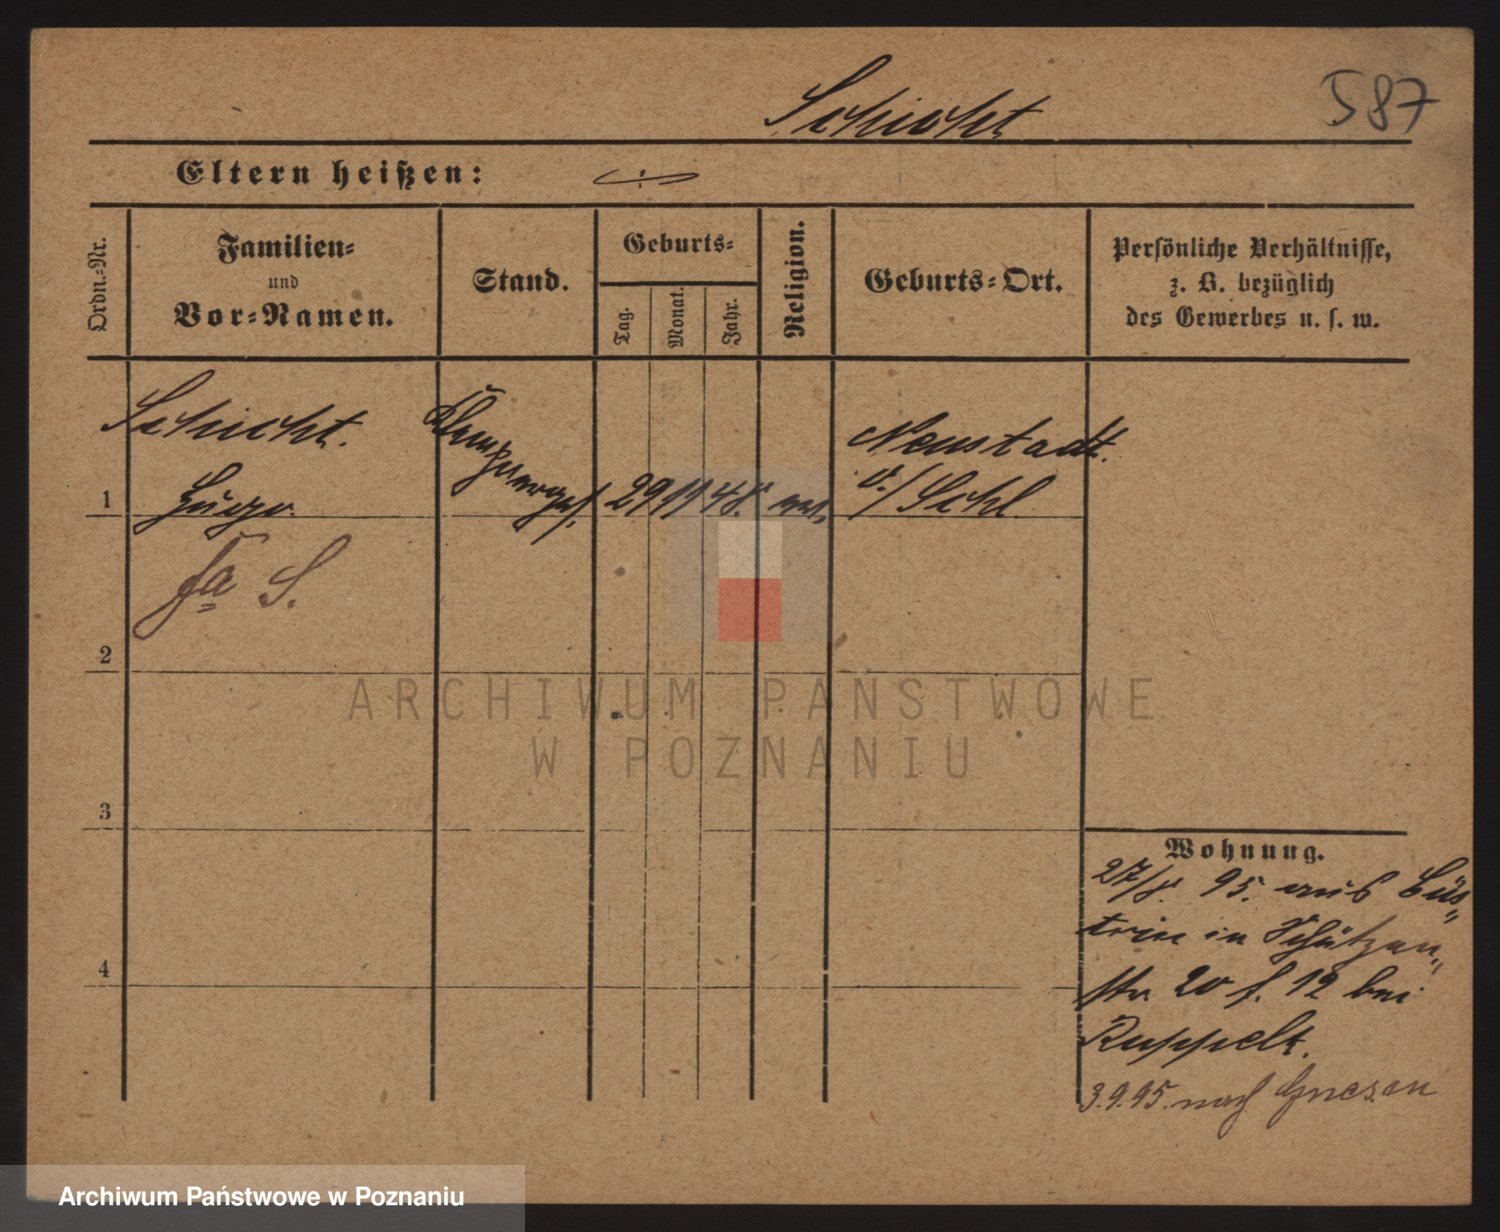 Schicht
587
Eltern heißen: ÷
Ordn.=Nr.
Familien=
und
Vor=Namen.
Stand.
Geburts=
Tag.
Monat.
Jahr.
Religion.
Geburts=Ort.
Persönliche Verhältnisse,
z. B. bezüglich
des Gewerbes u. s. w.
Schicht.
Klempnerges.
Neustadt.
1 Hugo. 29 11 48. o./Schl
fa S.
2
ARCHIWUM PAŃSTWOWE
W POZNANIU
3
Wohnung.
27/8. 95. aus Cüs„
trin in Schützen„
str 20 b. 12 bei
Ruppelt.
4
3.9.95. nach Gnesen
Archiwum Państwowe w Poznaniu